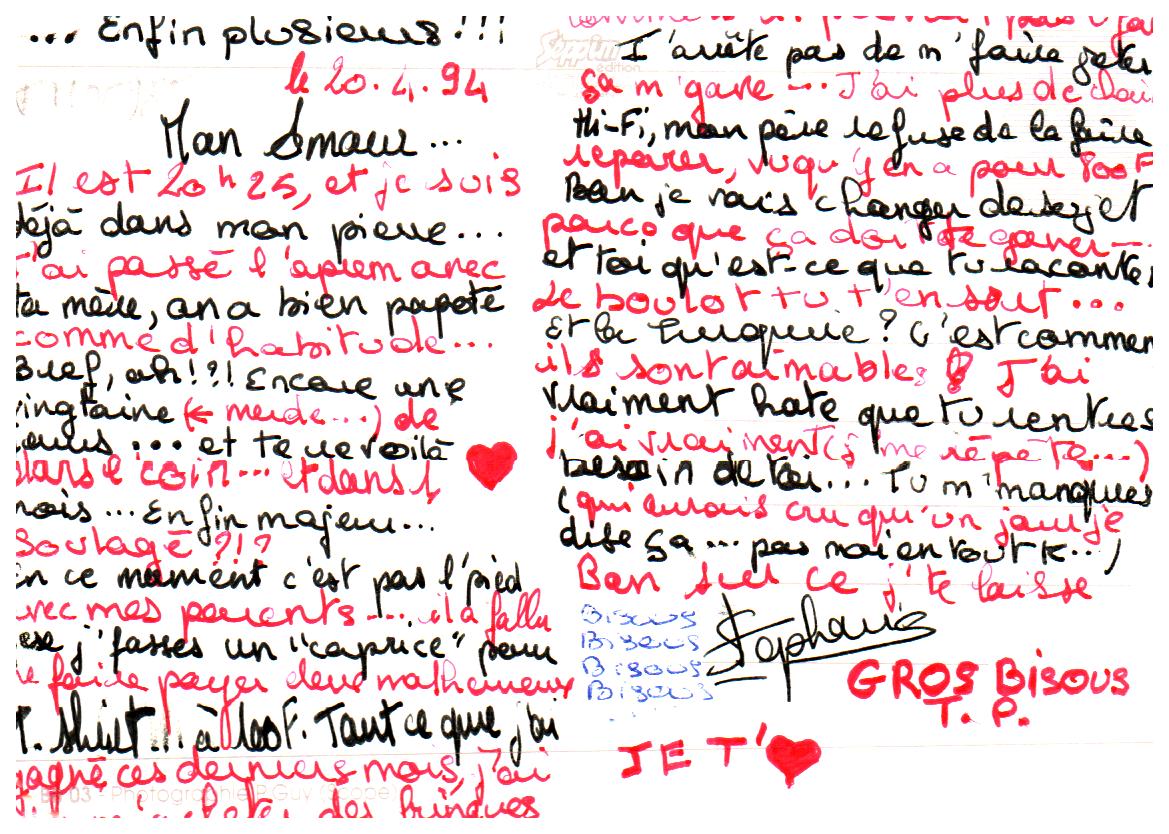 ... Enfin plusieurs !!!
le 20.4.94
Mon Amour...
Il est 20h25, et je suis
déjà dans mon pieue...
J'ai passé l'aprem avec
ta mère, on a bien papoté
comme d'habitude...
Bref, ah!?! Encore une
vingtaine (← merde...) de
jours ... et te revoilà
dans l'coin... et dans 1
mois ... Enfin majeur...
Soulagé ?!?
En ce moment c'est pas l'pied
avec mes parents... il a fallu
que j'fasses un "caprice" pour
me faire payer deux malheureux
T. Shirt... à 100F. Tout ce que j'ai
gagné ces derniers mois, j'ai
des fringues
J'arrête pas de m'faire jeter
ça m'gave ... J'ai plus de
Hi-Fi, mon père refuse de la faire
réparer, vu qu'y en a pour 800F
Bon je vais changer de sujet
parce que ça doit te gaver...
et toi qu'est-ce que tu racontes
Le boulot tu t'en sort ...
Et la Turquie ? C'est comment
ils sont aimables ? J'ai
vraiment hate que tu rentres
j'ai vraiment (j'me répète...)
besoin de toi... Tu m'manques
(qui aurais cru qu'un jour je
dise ça ... pas moi en tout K...)
Bon sur ce j'te laisse
Bisous
Bisous
Bisous
Bisous
Stéphanie
GROS BISOUS
T. P.
JE T'